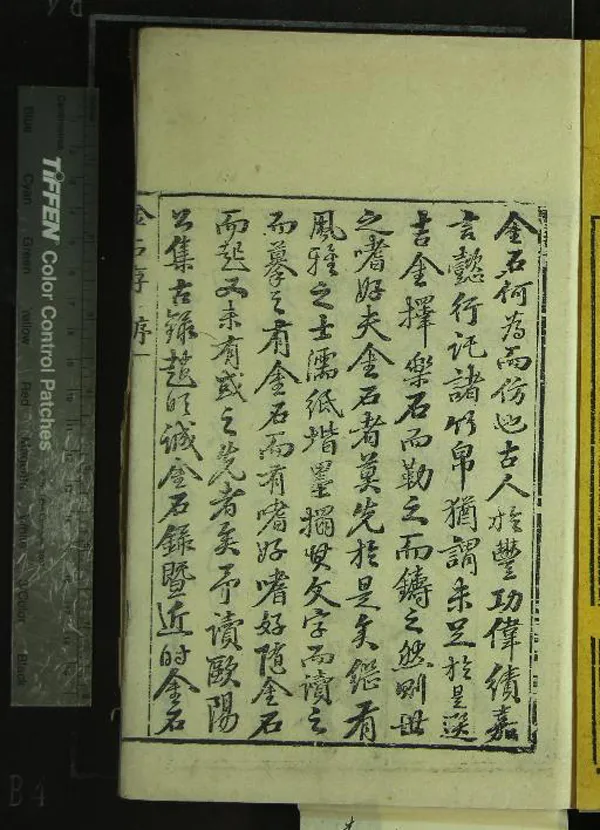 金石何為而仿也古人於豐功偉績嘉
言懿行託諸竹帛猶謂未足於是選
吉金擇樂石而勒之而鑄之然則世
之嗜好夫金石者莫先於是矣繼有
風雅之士濡紙揩墨搨其文字而讀之
而摹之有金石而有嗜好嗜好隨金石
而起又未有或之先者矣予讀歐陽
公集古錄趙明誠金石錄暨近時金石
金石存 序 一
TIFFEN Color Control Patches
Blue Cyan Green Yellow Red Magenta White 3/Color Black
Centimetres
B4